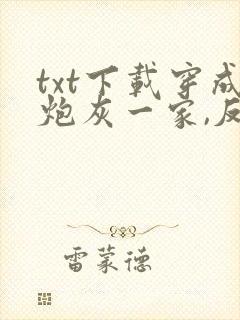 txt下载穿成
炮灰一家,反
雷蒙德